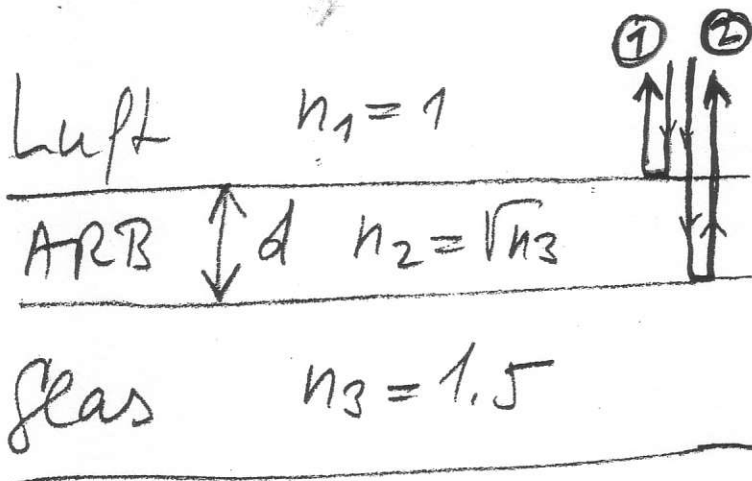 ① ②
Luft n₁ = 1
ARB d n₂ = √n₃
Glas n₃ = 1.5